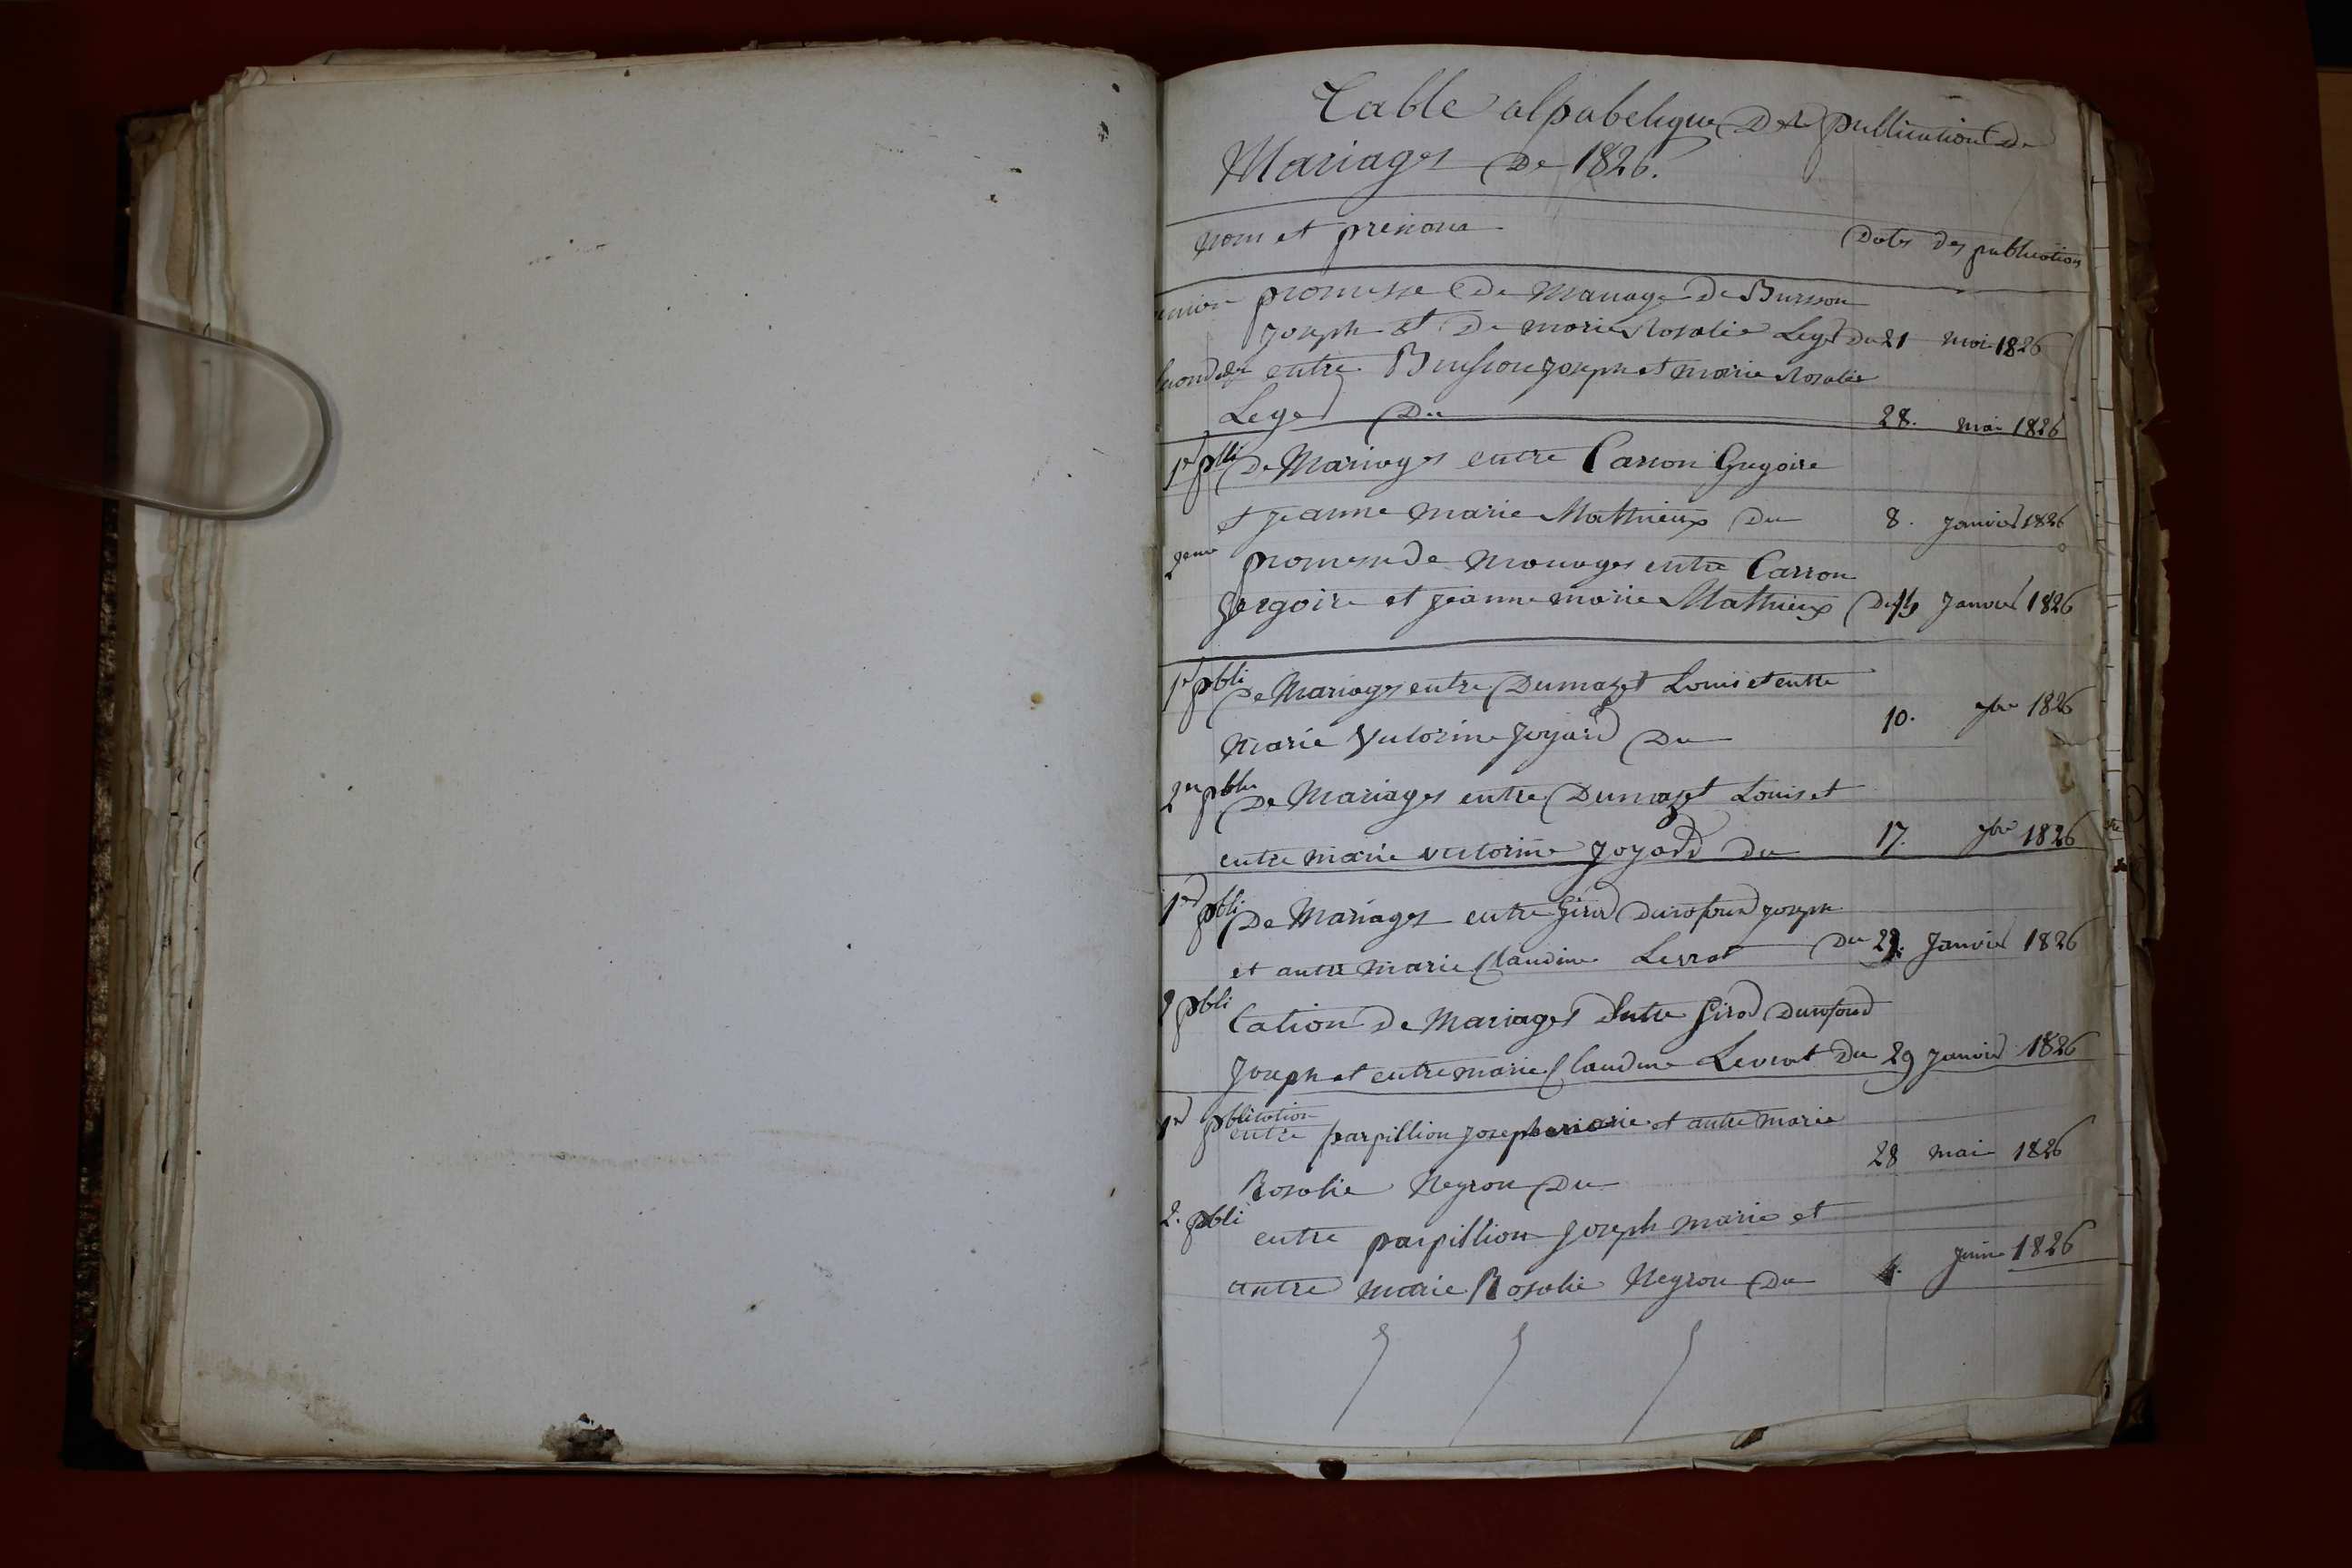 Table alpabetique Des publications de
Mariages De 1826.
Nom et prenoms Dates des publications
promesse De Mariage De Buisson
Joseph et De marie Rosalie Leger Du 21 mai 1826
seconde entre Buisson Joseph et marie Rosalie
Leger Du 28. mai 1826
1er pbli De Mariages entre Carron Gregoire
et jeanne marie Mathieux Du 8. janvier 1826
2eme promesse de Mariages entre Carron
Gregoire et jeanne marie Mathieux Du 15 Janvier 1826
1er pbli De Mariages entre Dumazet Louis et entre
Marie Victorine Joyard Du 10. 7bre 1826
2em pbli De Mariages entre Dumazet Louis et
entre marie victorine Joyard Du 17. 7bre 1826
1er pbli De Mariages entre Girod Durofour Joseph
et autre Marie Claudine Levrat Du 22. Janvier 1826
2 pbli Cation De Mariages Entre Girod Durofour
Joseph et entre marie Claudine Levrat Du 29 janvier 1826
1er pblication
entre parpillion Joseph marie et autre marie
Rosalie Neyron Du 28 mai 1826
2. pbli entre parpillion Joseph marie et
autre marie Rosalie Neyron Du 4. Juin 1826